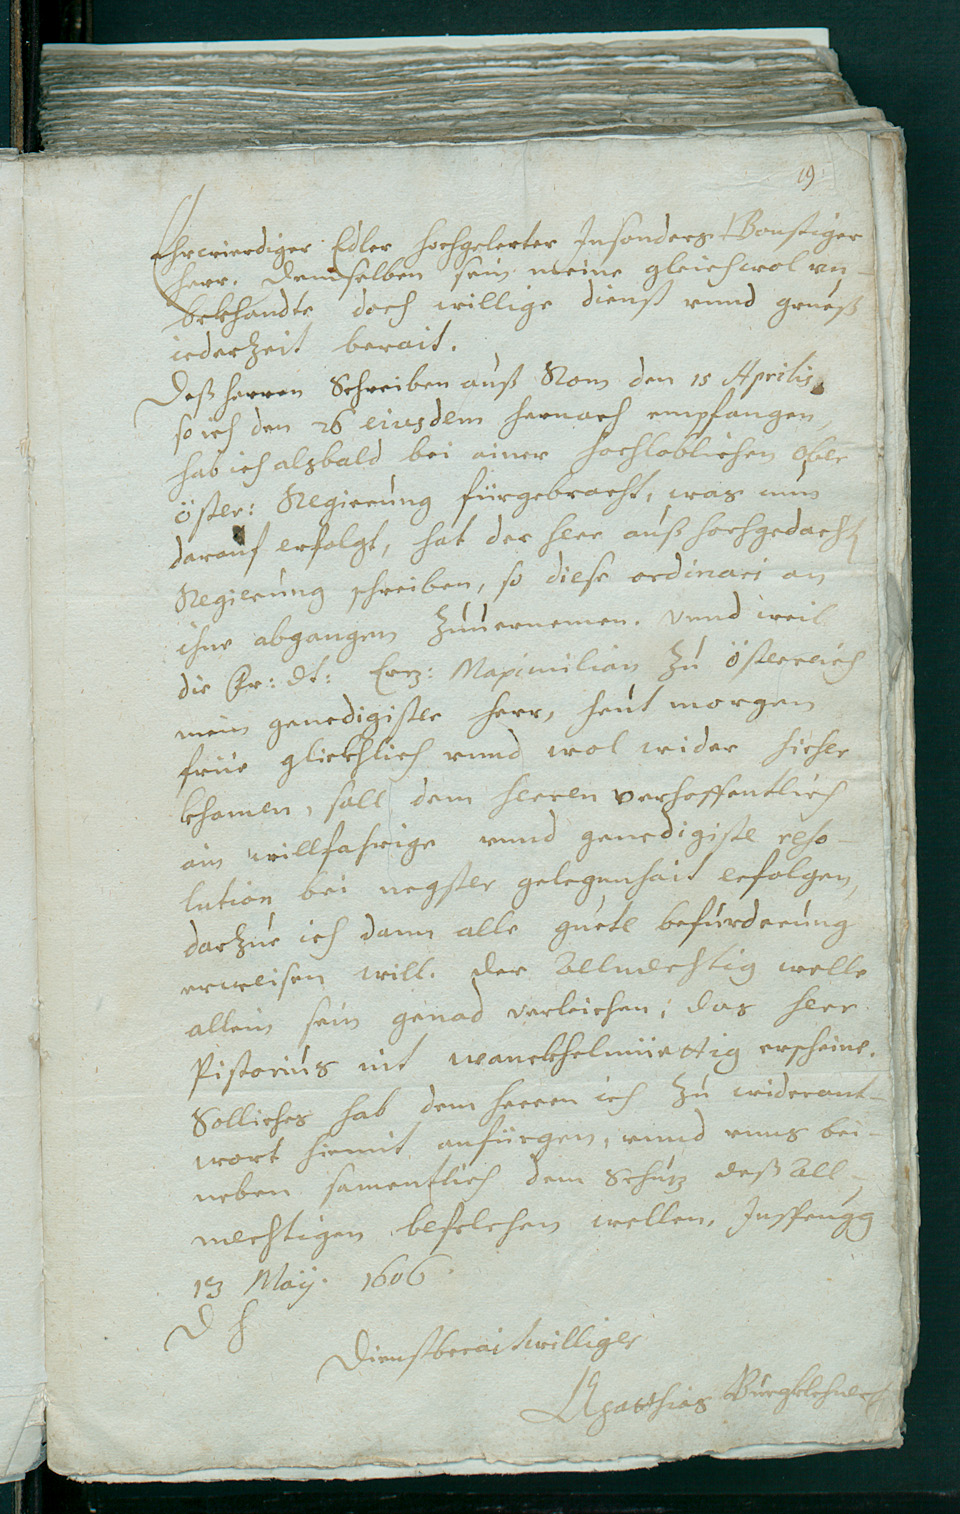 19
Ehrwierdiger Edler hochgelerter Insonders Gonstiger
herr. Demselben sein meine gleichwol vn-
bekhandte doch willige dienst vnnd gruess
iederzeit berait.
Deß herren Schreiben auß Rom den 15 Aprilis,
so ich den 26 eiusdem hernach empfangen,
hab ich alsbald bei ainer hochloblichen Ober
öster: Regierung fürgebracht, was nun
darauf erfolgt, hat der herr auß hochgedacht
Regierung schreiben, so diese ordinari an
ihne abgangen zuuernemen. Vnnd weil
die Fr: Dt: Erz: Maximilian zu Österreich
mein genedigister herr, heut morgen
früe glickhlich vnnd wol wider hieher
khomen, soll dem herren verhoffentlich
ain willfahrige vnnd genedigiste reso-
lution bei negster gelegenhait erfolgen,
darzue ich dann alle guete befürderung
erweisen will. Der Allmechtig welle
allein sein genad verleichen, das herr
Pistorius nit wanckhelmüettig erscheine.
Solliches hab dem herren ich zu widerant-
wort hiemit anfüegen, vnnd vnns bei-
neben samentlich dem Schutz deß All-
mechtigen befelchen wellen. Insprugg
13 Maÿ. 1606.
D h
Dienstberaitwilliger
Matthias Burgklehner